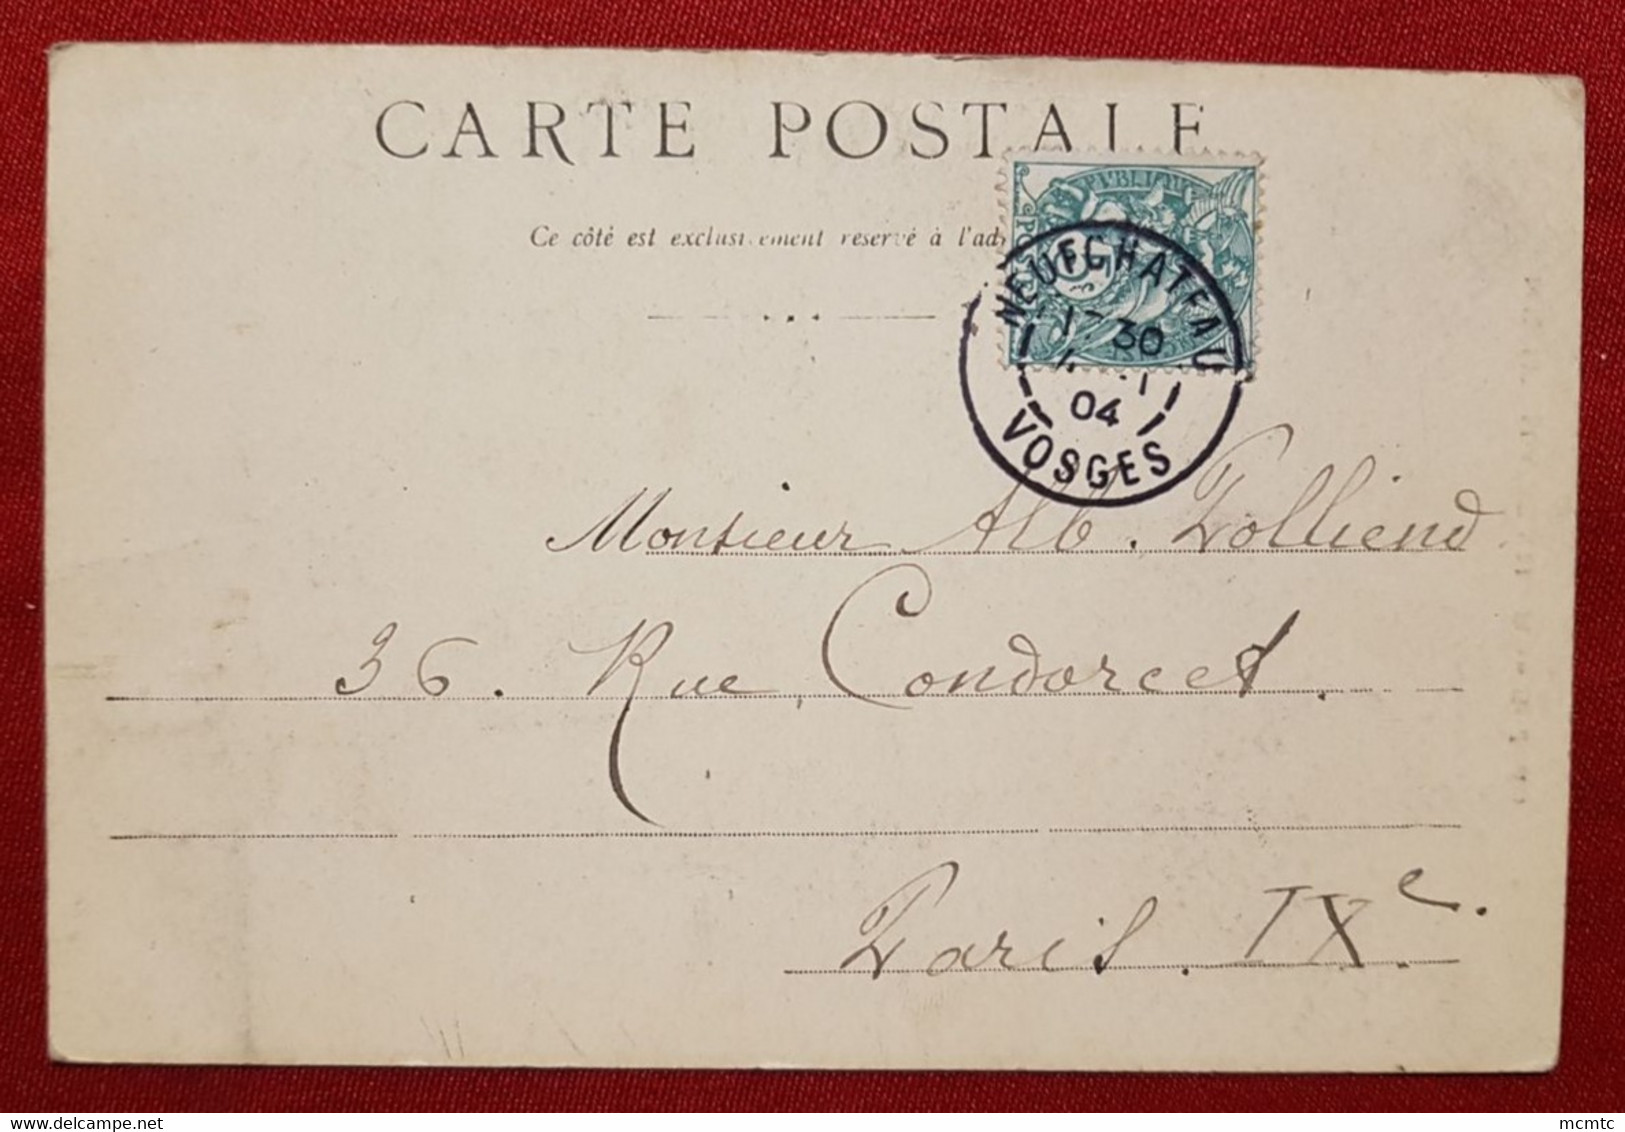 CARTE POSTALE
Ce côté est exclusivement réservé à l'ad
NEUFCHATEAU
30
04
VOSGES
Monsieur Alb. Polliend
36. Rue Condorcet.
Paris. IXe.
delcampe.net
mcmtc